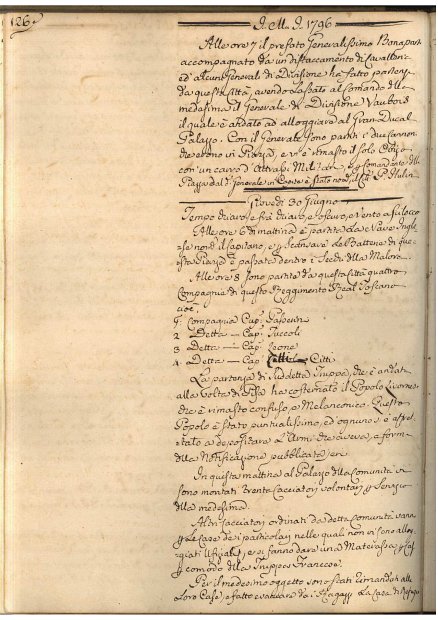 126
J. M. J. 1796
Alle ore 7 il prefato Generalissimo Bonapart
accompagnato da un distaccamento di Cavalleria
ed alcuni Generali di Divisione ha fatto partenza
da questa Città, avendo lasciato al Comando della
medesima il Generale di Divisione Vaubois
il quale è andato ad alloggiare al Gran-Ducal
Palazzo. Con il Generale sono partiti i due cannoni
che erono in Piazza, e vi è rimasto il solo
con un carro d'Attrazi Militari, e Comandante della
Piazza dal d.° Generale in Capite è stato nom.° il Citt.° P. Hulin
Giovedì 30 Giugno
Tempo chiaro e frà chiaro, e oscuro, e vento a scilocco
Alle ore 6 di mattina è partita la Nave Ingle
=se nord il Capitano, e scansare le Batterie di que
=sta Piazza è passata dentro i Secchi della Melora.
Alle ore 8 sono partite da questa Città quattro
Compagnie di questo Reggimento Real Toscano
cioè
1. Compagnia Cap.°
2 Detta — Cap.°
3 Detta — Cap.° Leone
4. Detta — Cap.° Citti
La partenza di suddetta Truppa, che è andata
alla Volta di Pisa ha costernato il Popolo Livornese
che è rimasto confuso, e Melanconico. Questo
Popolo è stato puntualissimo, ed ognuno si è affret
=tato a depositare l'Armi che aveva, a forma
della Notificazione pubblicata jeri.
In questa mattina al Palazzo della Comunità vi
sono montati trenta Cacciatori volontarj p Servizio
della medesima.
Altri Cacciatori ordinati da detta Comunità vanno
p le Case dei particolari nelle quali non vi sono allog
=giati Ufiziali, e si fanno dare una Materassa p Casa
p comodo della Truppa Francese.
Per il medesimo oggetto sono stati rimandati alle
Loro Case, e fatto evacuare da i Ragazzi la Casa di Refugio